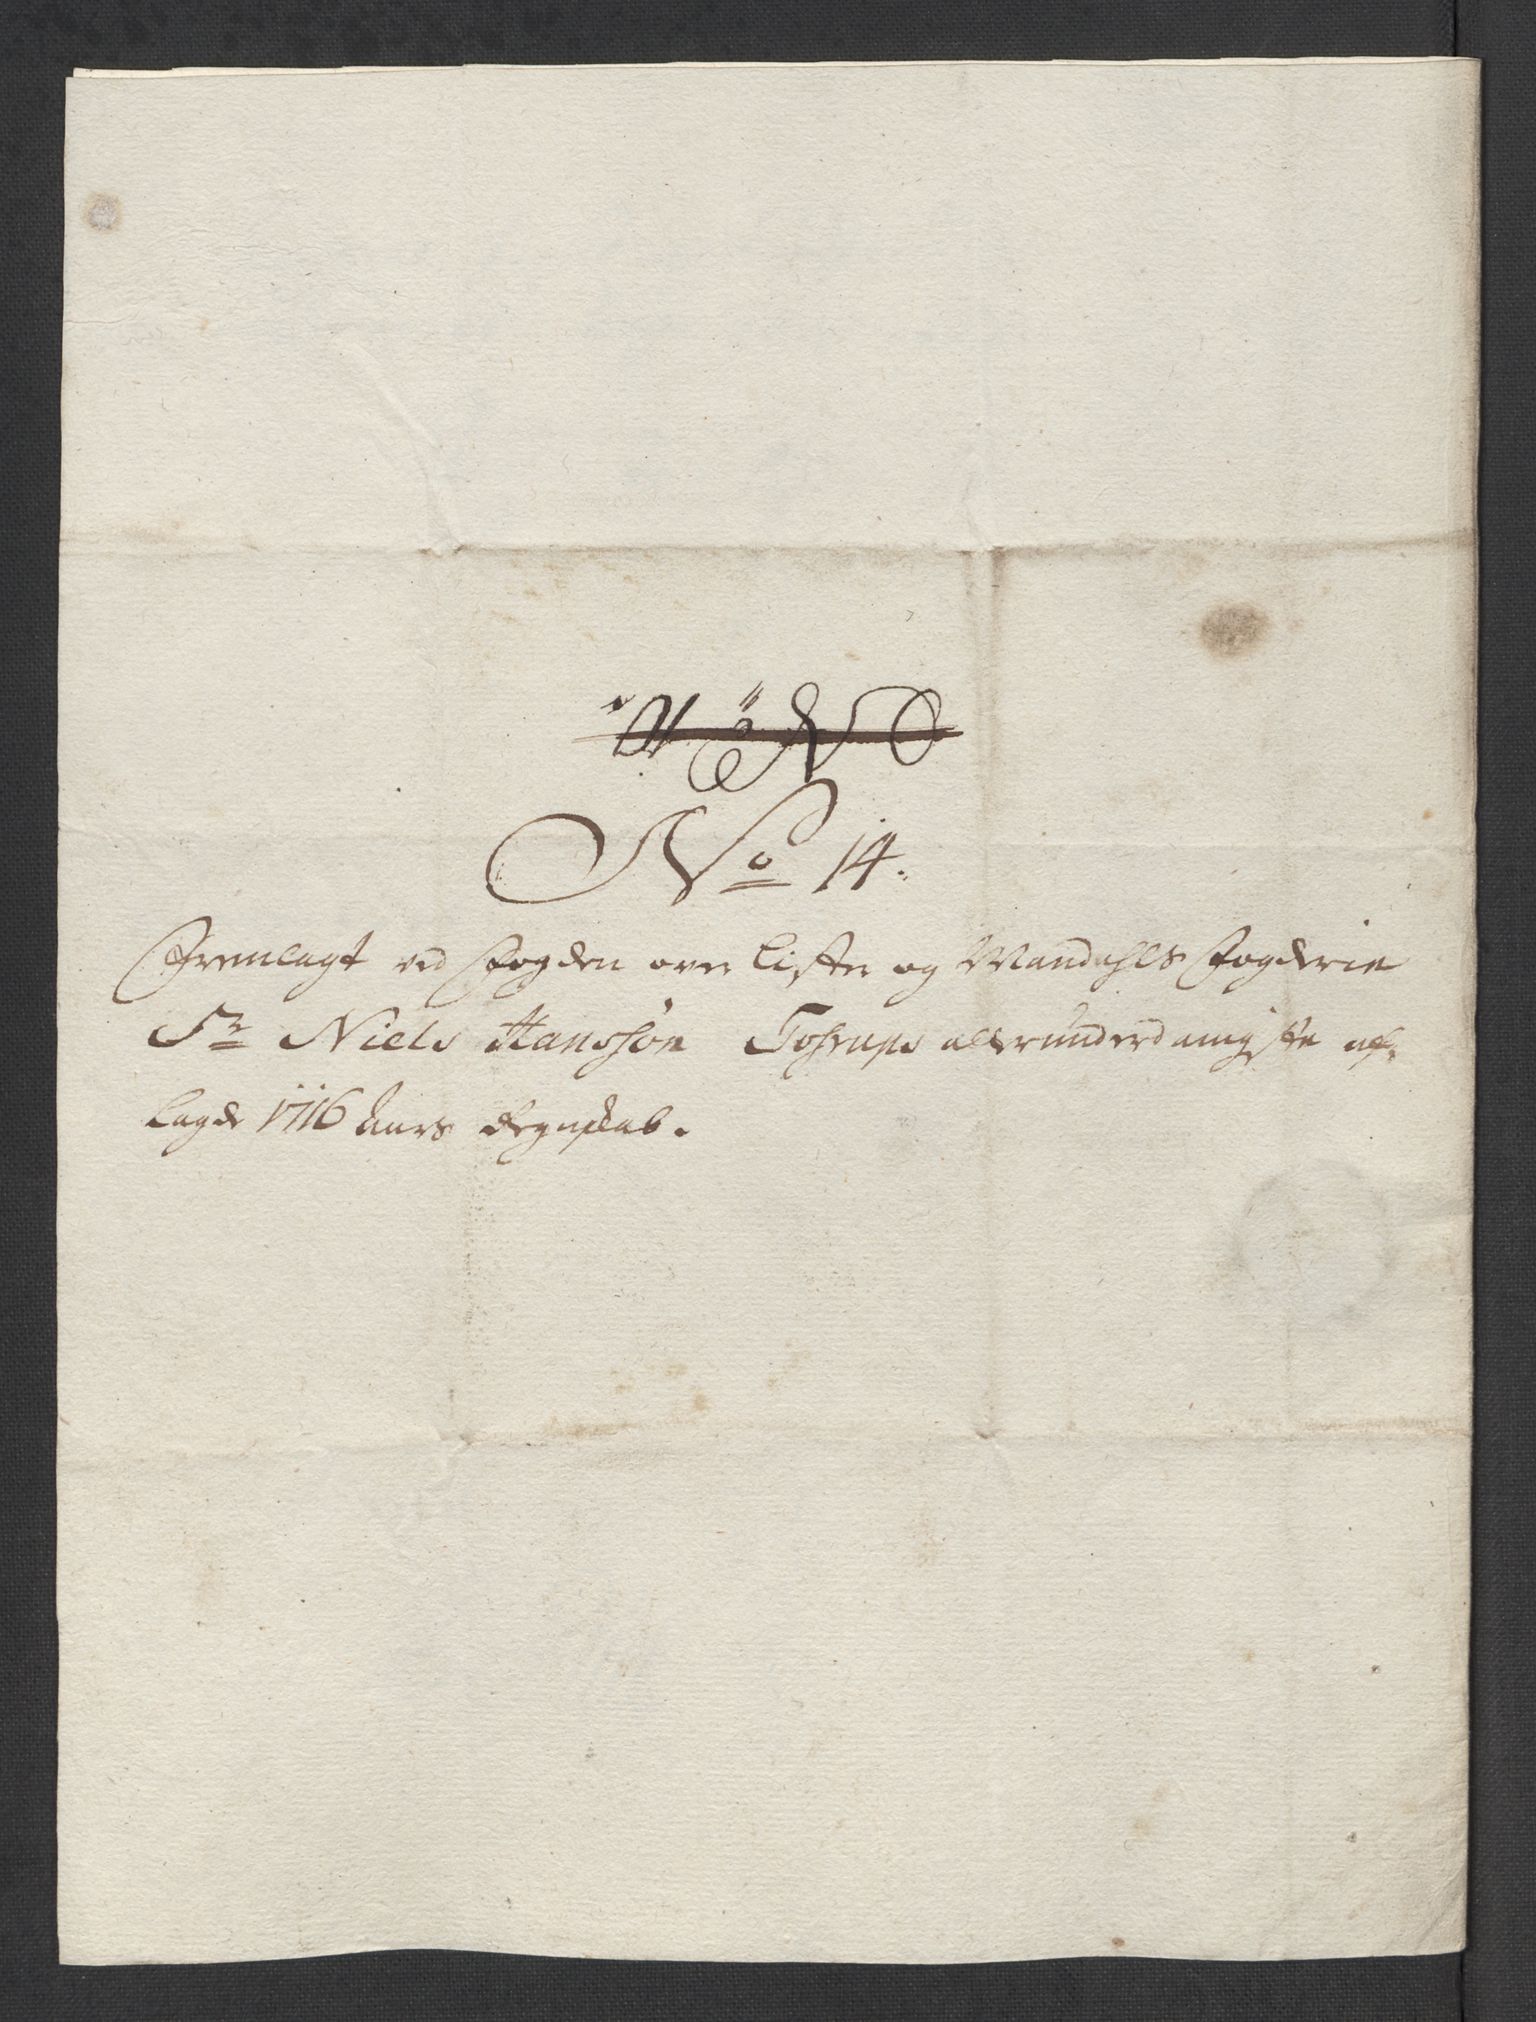 No 14.
Fremlagt ved Fogden over Lister og Mandahls Fogderie
Sr Niels Hanssøn Tostrups allerunderdanigste af¬
lagde 1716 Aars Regnskab.